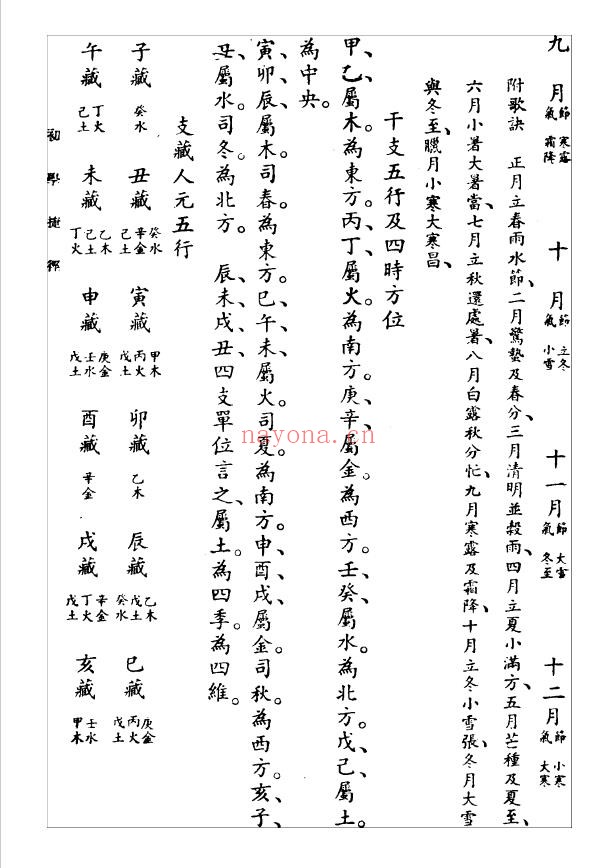 九月 節 寒露 氣 霜降 十月 節 立冬 氣 小雪 十一月 節 大雪 氣 冬至 十二月 節 小寒 氣 大寒
附歌訣 正月立春雨水節、二月驚蟄及春分、三月清明並穀雨、四月立夏小滿方、五月芒種及夏至、
六月小暑大暑當、七月立秋還處暑、八月白露秋分忙、九月寒露及霜降、十月立冬小雪張、冬月大雪
與冬至、臘月小寒大寒昌、
干支五行及四時方位
甲、乙、屬木。為東方。丙、丁、屬火。為南方。庚、辛、屬金。為西方。壬、癸、屬水。為北方。戊、己、屬土。
為中央。
寅、卯、辰、屬木。司春。為東方。巳、午、未、屬火。司夏。為南方。申、酉、戌、屬金。司秋。為西方。亥、子、
丑、屬水。司冬。為北方。 辰、未、戌、丑、四支單位言之、屬土。為四季。為四維。
支藏人元五行
子藏 癸水 丑藏 癸水 辛金 己土 寅藏 甲木 丙火 戊土 卯藏 乙木 辰藏 乙木 戊土 癸水 巳藏 庚金 丙火 戊土
午藏 丁火 己土 未藏 乙木 己土 丁火 申藏 庚金 壬水 戊土 酉藏 辛金 戌藏 辛金 丁火 戊土 亥藏 壬水 甲木
初學捷徑
nayona.cn